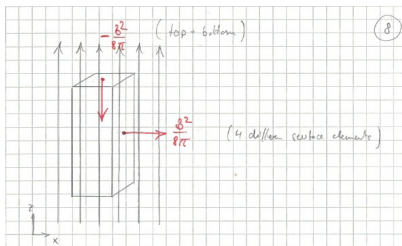 - B²/8π (top + bottom)
8
B²/8π (4 different surface elements)
z
x